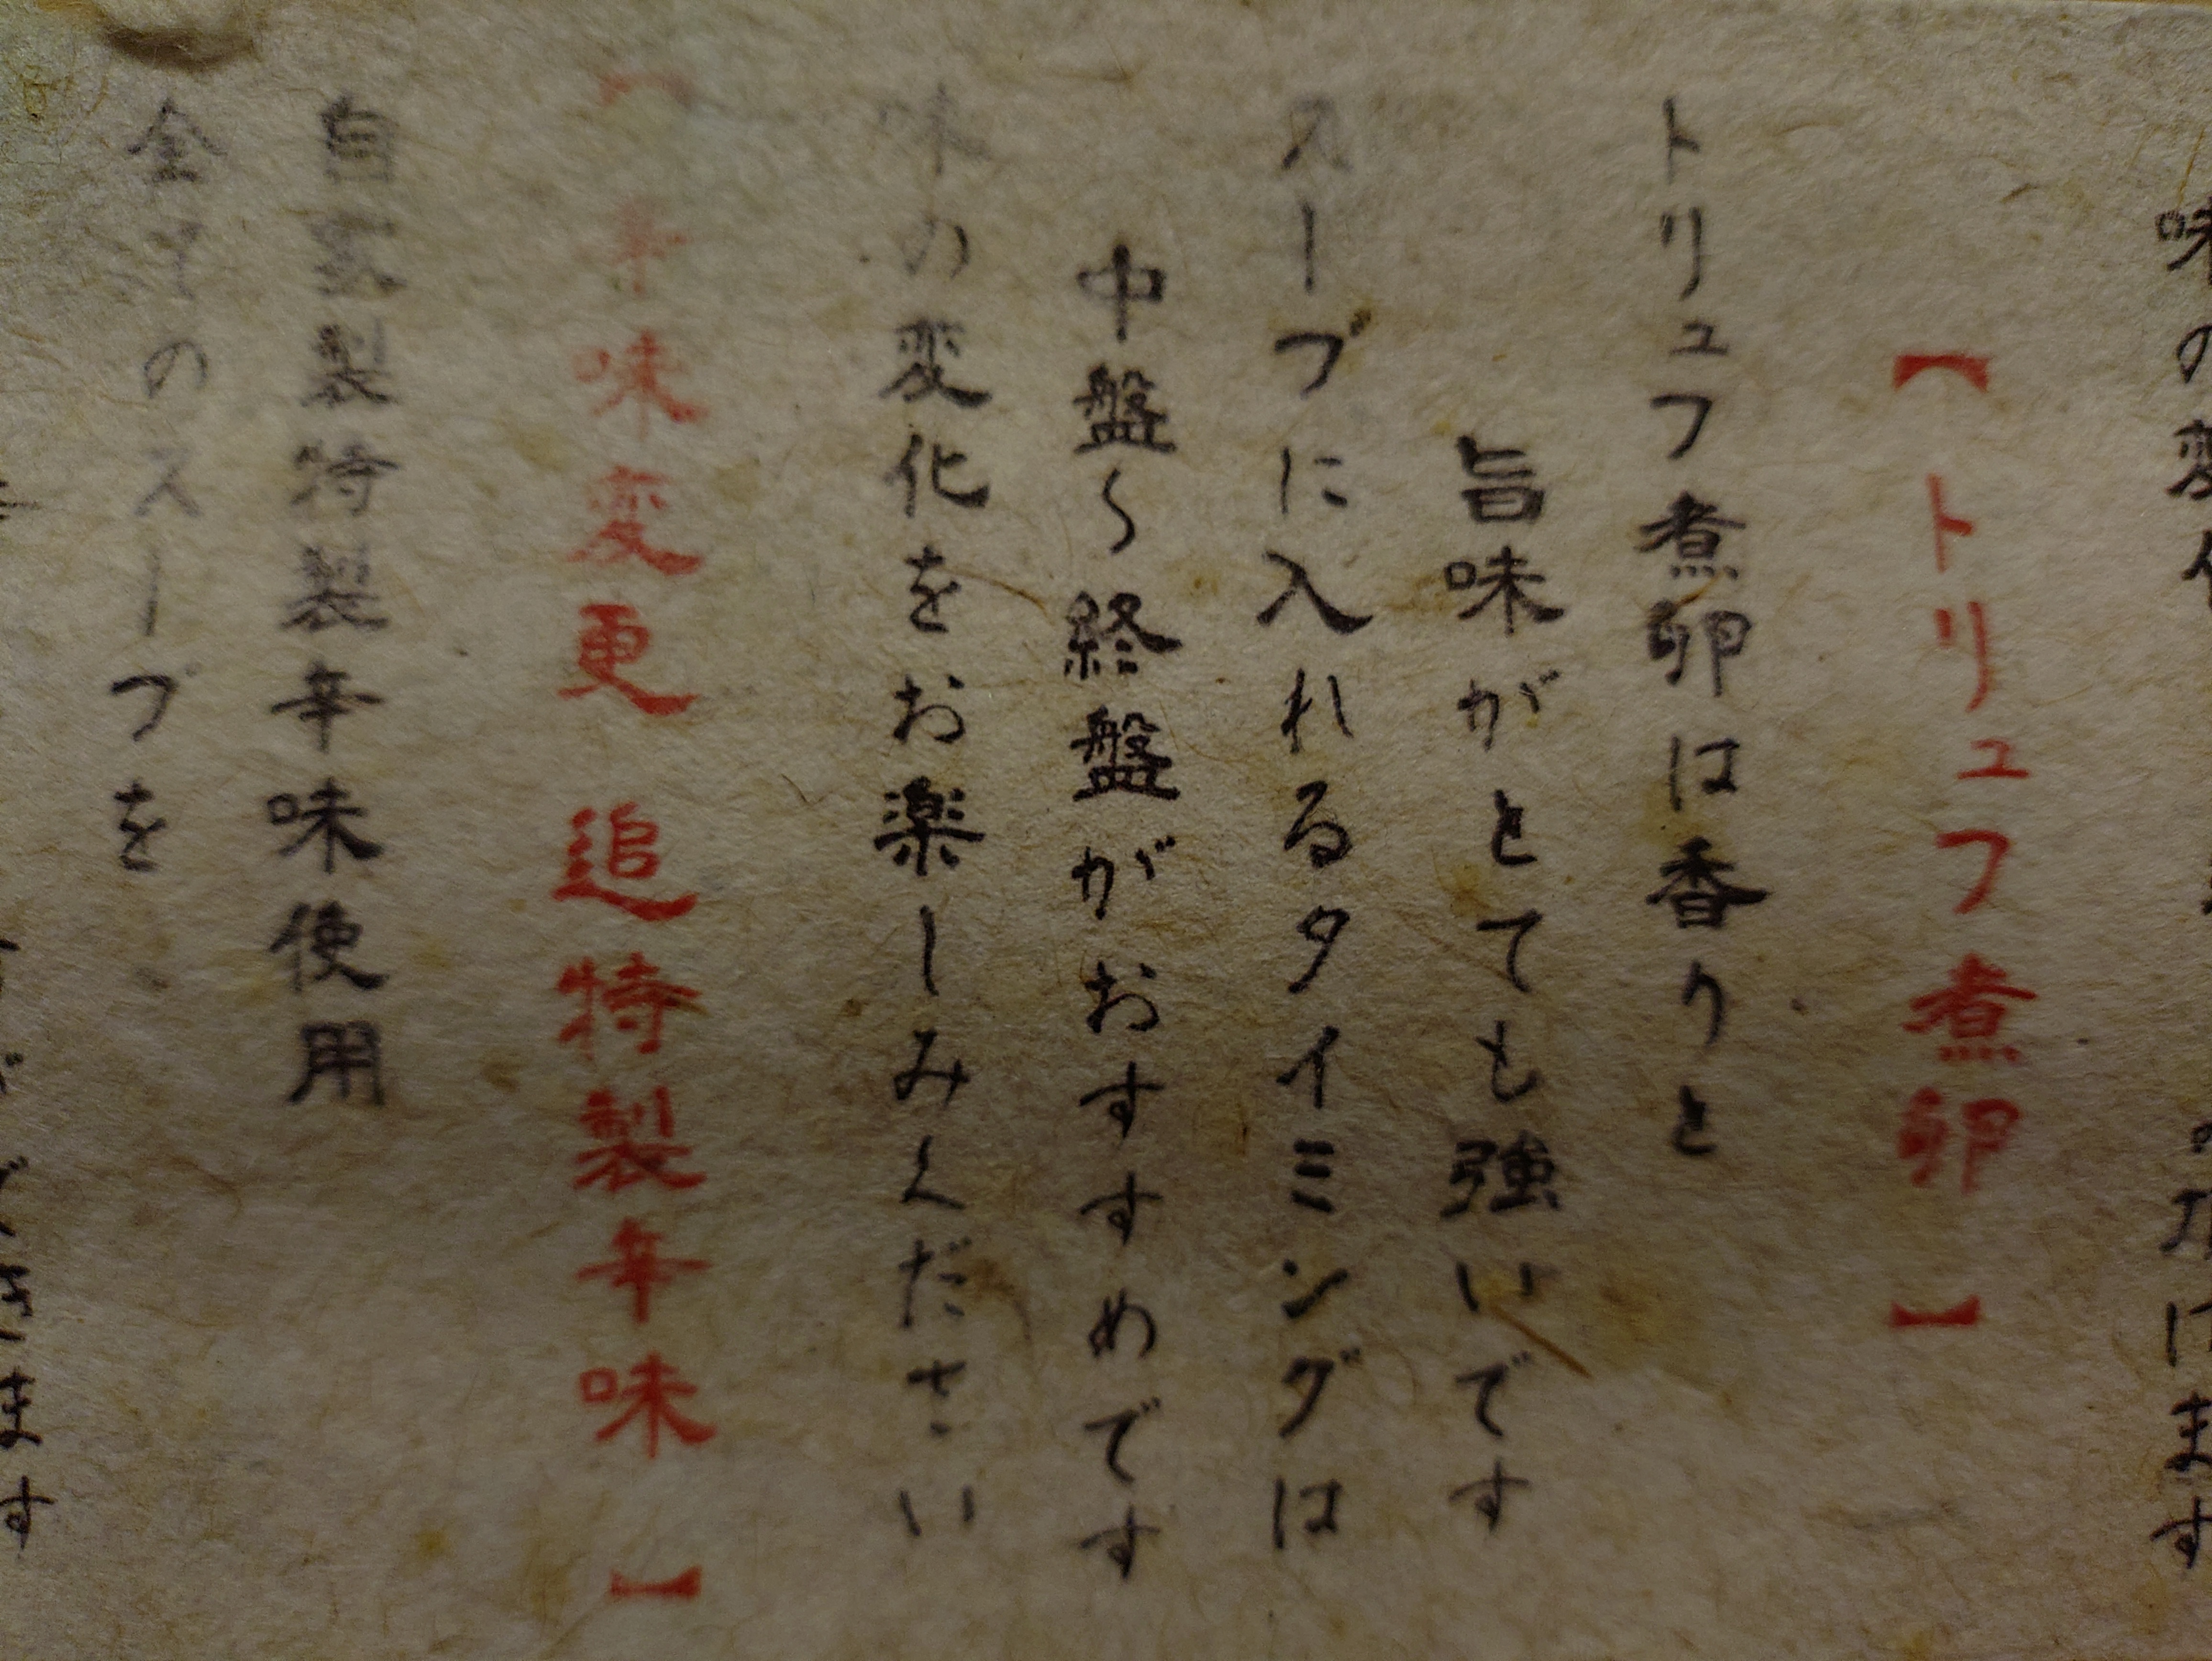 【トリュフ煮卵】
トリュフ煮卵は香りと
旨味がとても強いです
スープに入れるタイミングは
中盤〜終盤がおすすめです
味の変化をお楽しみください
【辛味変更 追特製辛味】
自家製特製辛味使用
全てのスープを